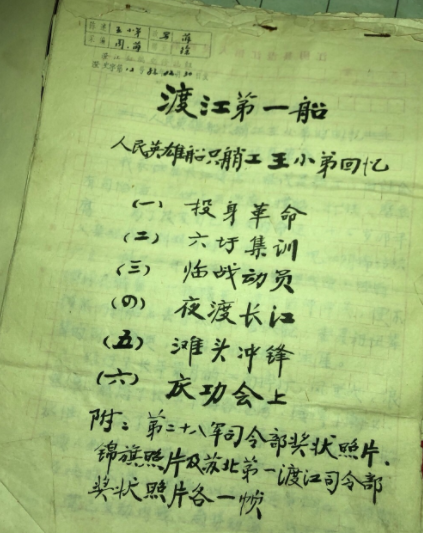 渡江第一船
人民英雄船只艄工王小弟回忆
(一) 投身革命
(二) 六圩集训
(三) 临战动员
(四) 夜渡长江
(五) 滩头冲锋
(六) 庆功会上
附：第二十八军司令部奖状照片、
锦旗照片及苏北第一渡江司令部
奖状照片各一帧